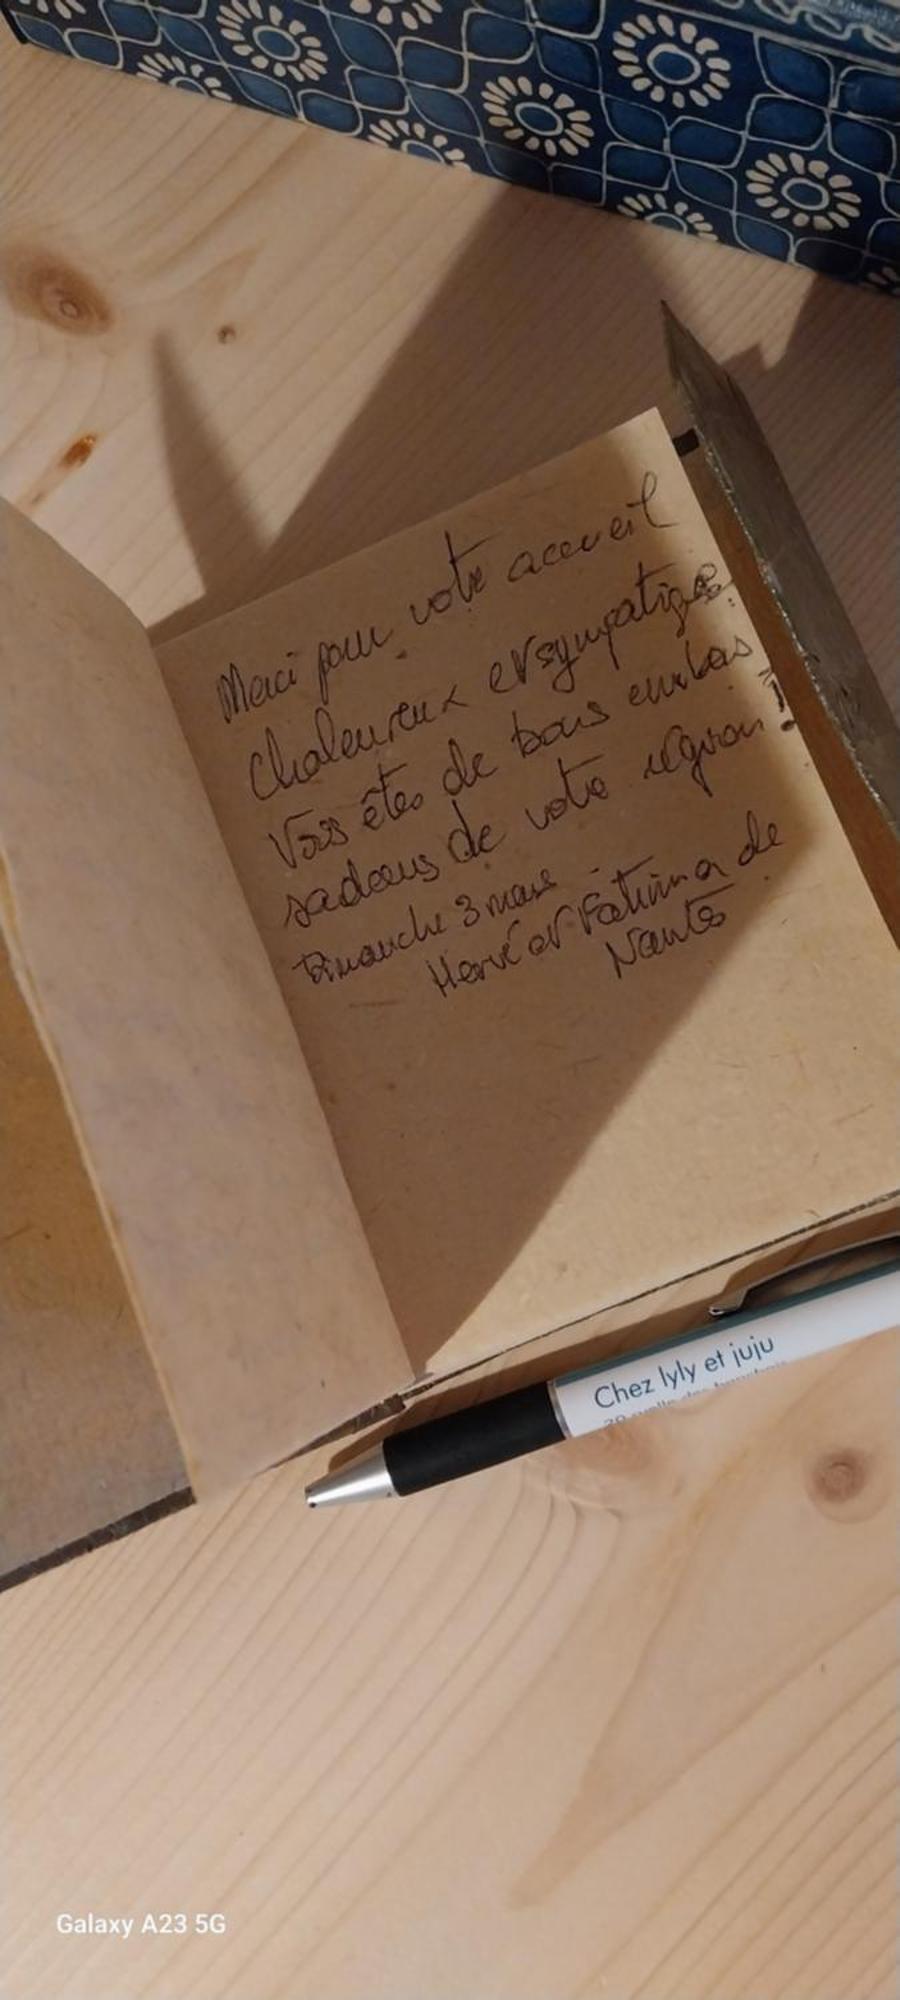 Merci pour votre accueil
chaleureux et sympatique.
Vous êtes de bons embas
sadeurs de votre région !
Dimanche 3 mars
Hervé et Fatima de
Nantes
Chez lyly et juju
Galaxy A23 5G